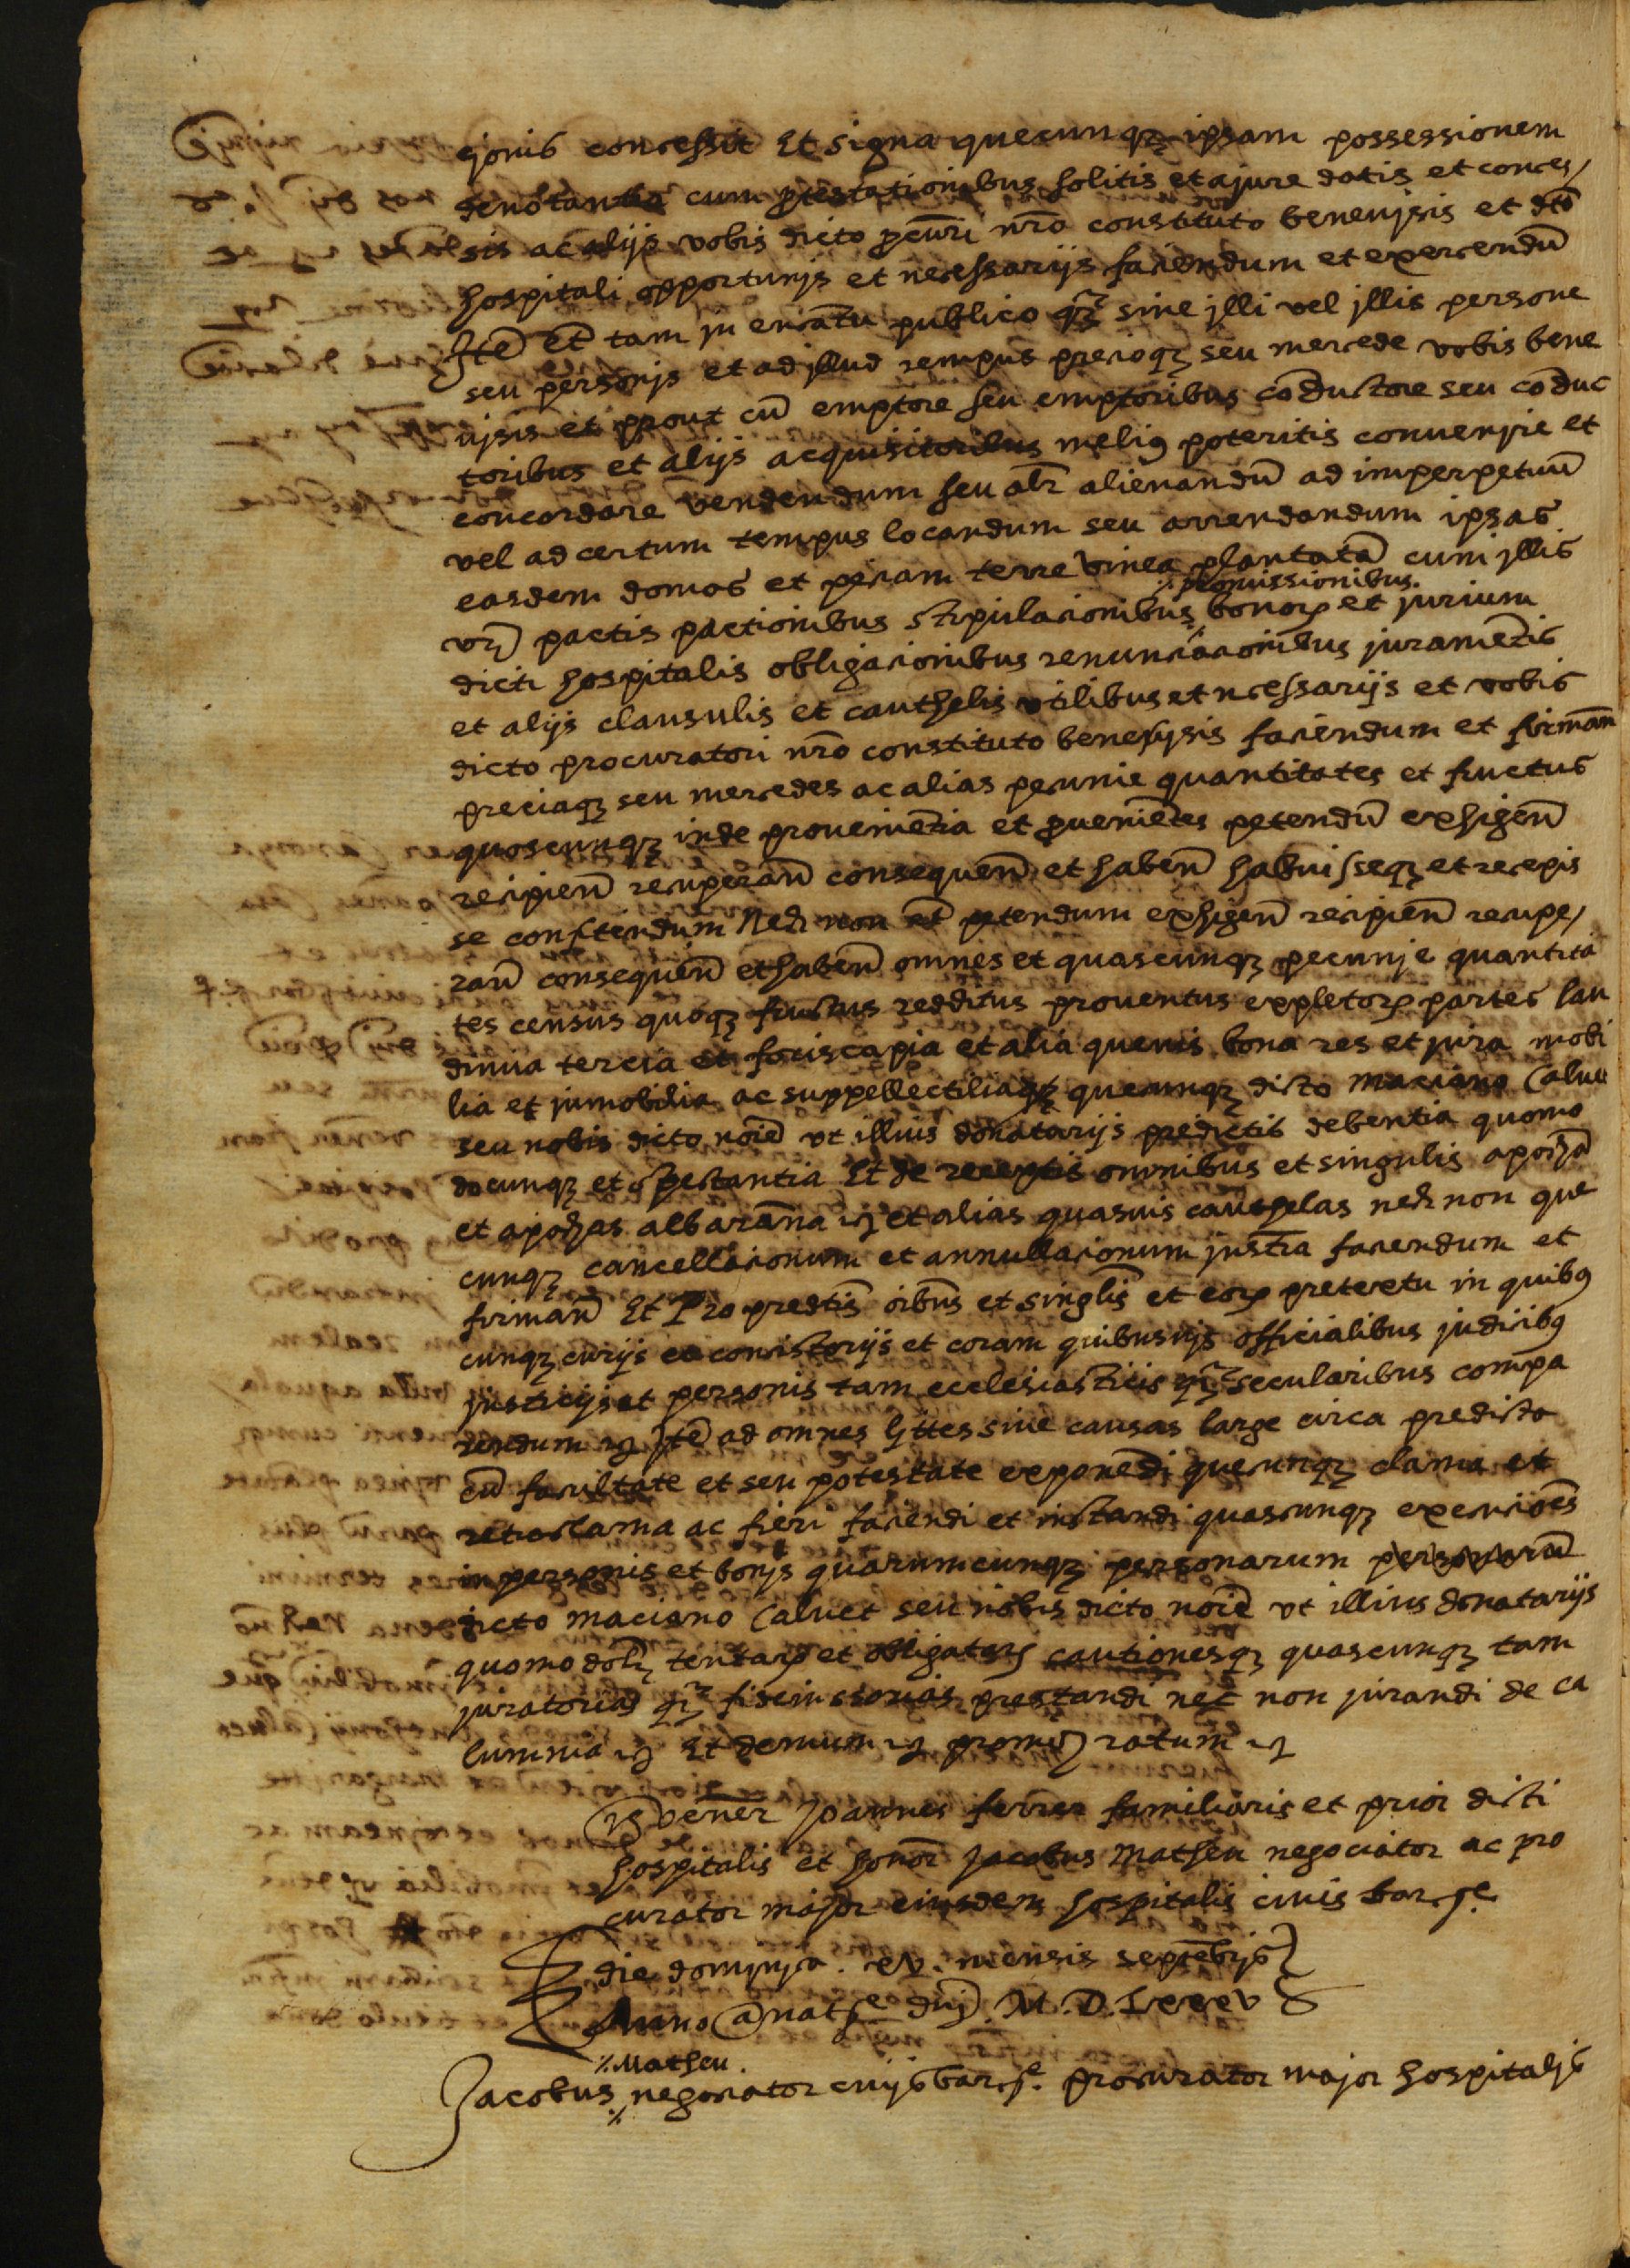 gionis concessit Et signa quecunqꝫ ipsam possessionem
denotantia cum ꝓtestationibus solitis et a jure datis et conces/
sis ac alijs vobis dicto ꝓcur̄i nr̄o constituto benevisis et dc̄o
hospitali opportunjs et necessarijs faciendum et exercendū
Itē et̄ tam jn encātu publico qꝫ̄ sine jlli vel jllis persone
seu personjs et ad jllud tempus precioqꝫ seu mercede vobis bene
vjsis et prout cū emptore seu emptoribus cōductore seu cōduc
toribus et alijs acquisitoribus meliꝰ poteritis convenjre et
concordare vendendum seu alr̄ alienandū ad imperpetuū
vel ad certum tempus locandum seu arrendandum ipsas
easdem domos et peciam terre vinea plantatā cum jllis
·/· promissionibus.
vr̄j pactis pactionibus stipulacionibus bonoꝝ et jurium
dicti hospitalis obligacionibus renunciacionibus juramētis
et alijs clausulis et cauthelis vtilibus et ncessarijs et vobis
dicto procuratori nr̄o constituto benevjsis faciendum et firmān
preciaqꝫ seu mercedes ac alias pecunie quantitates et fructus
quoscunqꝫ inde proveniētia et ꝓueniētes petendū exhigen̄
recipien̄ recuperan̄ consequen̄ et haben̄ habuisseqꝫ et recepis
se confitendum Nec̄ non et̄ petendum exhigen̄ recipien̄ recupe/
ran̄ consequen̄ et haben̄ omnes et quascunqꝫ pecunje quantita
tes census quoqꝫ fructus redditus prouentus expletoꝝ partes lau
dimia tercia et foriscapia et alia quevis bona res et jura mobi
lia et jnmobilia ac suppellectilia queqꝫ quecunqꝫ dicto Maciano Calvet
seu nobis dicto noīe vt illius donatarijs predictis debentia quomo
docunqꝫ et spectantia Et de receptis omnibus et singulis apocā
et apochas albarāna ꝛc̄ et alias quasuis cauthelas nec̄ non que
cunqꝫ cancellacionum et annullacionum jnstr̄a faciendum et
firman̄ Et Pro predc̄tis oībus et singl̄is et eoꝝ pretextu in quibꝰ
cunqꝫ curijs et consistorijs et coram quibusvjs officialibus judicibꝰ
justicijs et personis tam ecclesiasticis qꝫ̄ secularibus compa
rendum ꝛc̄ Itē ad omnes ljttes sive causas large circa predicta
cū facultate et seu potestate exponēdi quecunqꝫ clama et
retroclama ac fieri faciendi et instandi quascunqꝫ execuciōes
in personis et bonjs quarumcunqꝫ personarum personarū
dicto maciano Calvet seu nobis dicto noīe vt illius donatarijs
quomodol̄ꝫ tentaꝝ et obligataꝝ cautionesqꝫ quascunqꝫ tam
juratorias qꝫ̄ fideiussorias prestandi nec̄ non jurandi de ca
lumnia ꝛc̄ Et demum ꝛc̄ promitꝫ ratum ꝛc̄
Tꝭ vener̄ Joannes ferrer familiaris et prior dicti
hospitalis et honor̄ Jacobus Matheu negociator ac pro
curator major eiusdem hospitalis civis barcͤ
die dominjca . xv . mensis septēbrjs
Anno a natͤ dn̄j . M . D . Lxxxv
·/· Matheu .
Jacobus ·/· negociator civjs barcͤ . procurator major hospitaljs